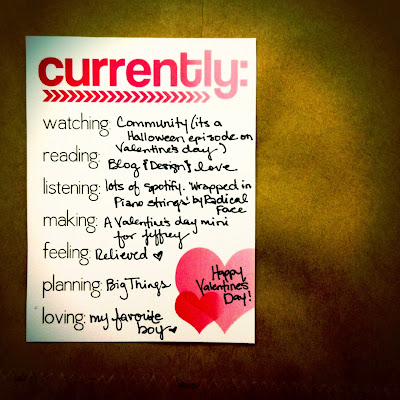 currently:
watching: Community (its a
Halloween episode on
Valentine's day)
reading: Blog {Design} love
listening: lots of Spotify. "Wrapped in
Piano strings" by Radical
Face
making: A Valentine's day mini
for Jeffrey
feeling: Relieved ♥
planning: Big Things
Happy
Valentine's
Day!
loving: my favorite
boy ♥